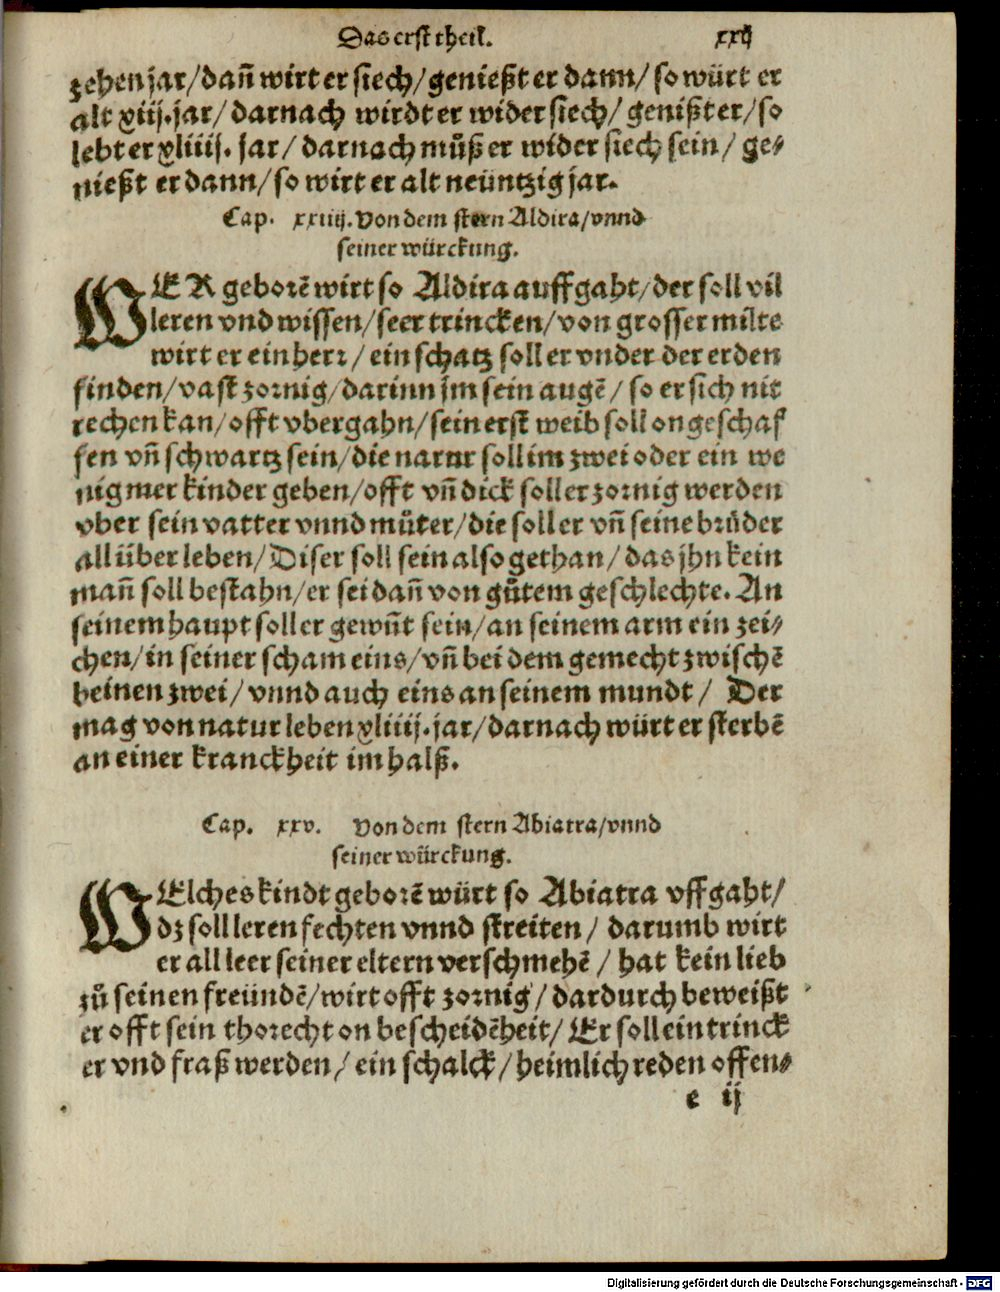 Das erst theil. xxij
zehen jar/dañ wirt er siech/genießt er dann/so würt er
alt xiij.jar/darnach wirdt er wider siech/genißt er/so
lebt er xliiij. jar/darnach můß er wider siech sein/ge⸗
nießt er dann/so wirt er alt neüntzig jar.
Cap. xxiiij. Von dem stern Aldira/vnnd
seiner würckung.
WER geborẽ wirt so Aldira auffgaht/der soll vil
leren vnd wissen/seer trincken/von grosser milte
wirt er ein herr/ein schatz soll er vnder der erden
finden/vast zornig/darinn jm sein augẽ/so er sich nit
rechen kan/offt vbergahn/sein erst weib soll ongeschaf
fen vñ schwartz sein/die natur soll im zwei oder ein we
nig mer kinder geben/offt vñ dick soll er zornig werden
vber sein vatter vnnd můter/die soll er vñ seine brüder
all überleben/Diser soll sein also gethan/das jhn kein
mañ soll bestahn/er sei dañ von gůtem geschlechte. An
seinem haupt soll er gewũt sein/an seinem arm ein zei⸗
chen/in seiner scham eins/vñ bei dem gemecht zwischẽ
beinen zwei/vnnd auch eins an seinem mundt/ Der
mag von natur leben xliiij.jar/darnach würt er sterbẽ
an einer kranckheit im halß.
Cap. xxv. Von dem stern Abiatra/vnnd
seiner würckung.
WElches kindt geborẽ würt so Abiatra vffgaht/
dz soll leren fechten vnnd streiten/darumb wirt
er all leer seiner eltern verschmehẽ/hat kein lieb
zů seinen freündẽ/wirt offt zornig/dardurch beweißt
er offt sein thorecht onbescheidẽheit/Er soll ein trinck
er vnd fraß werden/ein schalck/heimlich reden offen⸗
e ij
Digitalisierung gefördert durch die Deutsche Forschungsgemeinschaft - DFG